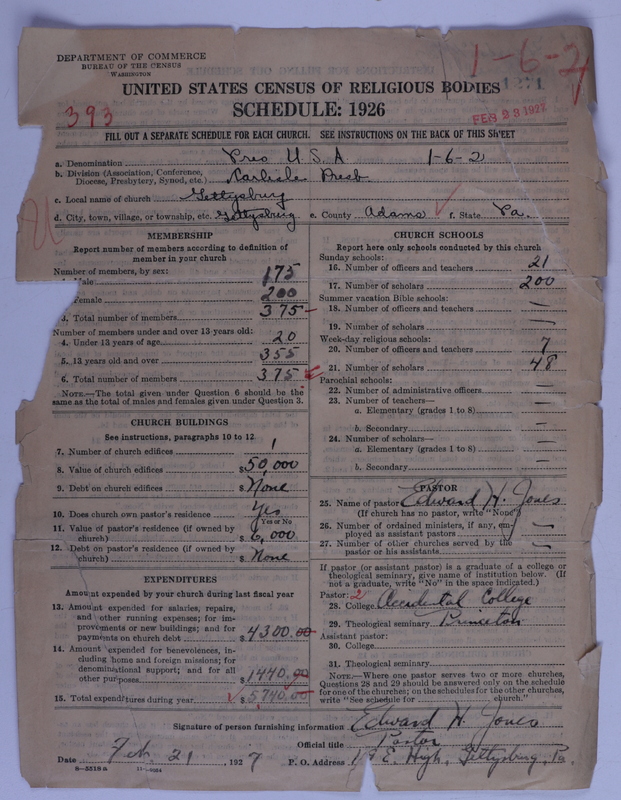 DEPARTMENT OF COMMERCE
BUREAU OF THE CENSUS
WASHINGTON
1-6-2
1271
UNITED STATES CENSUS OF RELIGIOUS BODIES
SCHEDULE: 1926
393
FEB 23 1927
FILL OUT A SEPARATE SCHEDULE FOR EACH CHURCH. SEE INSTRUCTIONS ON THE BACK OF THIS SHEET
a. Denomination Pres U.S.A 1-6-2
b. Division (Association, Conference, Diocese, Presbytery, Synod, etc.) Carlisle Presb.
c. Local name of church Gettysburg
d. City, town, village, or township, etc. Gettysburg e. County Adams f. State Pa.
MEMBERSHIP
Report number of members according to definition of
member in your church
Number of members, by sex:
Male 175
Female 200
3. Total number of members 375
Number of members under and over 13 years old:
4. Under 13 years of age 20
5. 13 years old and over 355
6. Total number of members 375
NOTE.—The total given under Question 6 should be
same as the total of males and females given under Question 3.
CHURCH BUILDINGS
See instructions, paragraphs 10 to 12
7. Number of church edifices 1
8. Value of church edifices $50,000
9. Debt on church edifices $None
10. Does church own pastor's residence Yes
Yes or No
11. Value of pastor's residence (if owned by
church) $6,000
12. Debt on pastor's residence (if owned by
church) $None
EXPENDITURES
Amount expended by your church during last fiscal year
13. Amount expended for salaries, repairs,
and other running expenses; for im-
provements or new buildings; and for
payments on church debt $4300.00
14. Amount expended for benevolences, in-
cluding home and foreign missions; for
denominational support; and for all
other purposes $1440.00
15. Total expenditures during year $5,740.00
CHURCH SCHOOLS
Report here only schools conducted by this church
Sunday schools:
16. Number of officers and teachers 21
17. Number of scholars 200
Summer vacation Bible schools:
18. Number of officers and teachers —
19. Number of scholars —
Week-day religious schools:
20. Number of officers and teachers 7
21. Number of scholars 48
Parochial schools:
22. Number of administrative officers —
23. Number of teachers—
a. Elementary (grades 1 to 8) —
b. Secondary —
24. Number of scholars—
a. Elementary (grades 1 to 8) —
b. Secondary —
PASTOR
25. Name of pastor Edward H. Jones
(If church has no pastor, write "None")
26. Number of ordained ministers, if any, em-
ployed as assistant pastors —
27. Number of other churches served by the
pastor or his assistants —
If pastor (or assistant pastor) is a graduate of a college or
theological seminary, give name of institution below. (If
not a graduate, write "No" in the space indicated.)
Pastor: 2
28. College Accidental College
29. Theological seminary Princeton
Assistant pastor:
30. College
31. Theological seminary
NOTE.—Where one pastor serves two or more churches,
Questions 28 and 29 should be answered only on the schedule
for one of the churches; on the schedules for the other churches,
write "See schedule for church."
Signature of person furnishing information Edward H. Jones
Official title Pastor
Date Feb 21, 1927 P. O. Address E. High, Gettysburg, Pa.
8-5518a